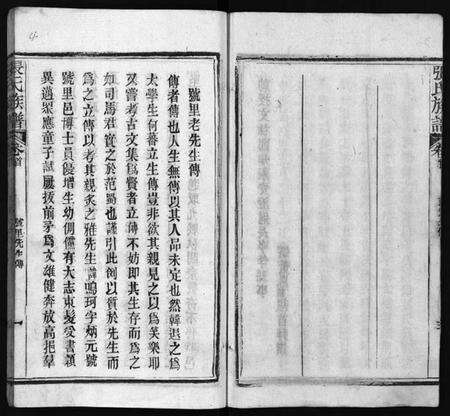 號里老先生傳
傳者傳也人生無傳以其人品未定也然韓退之爲
太學生何蕃立生傳豈非欲其親見之以爲笑樂耶
又嘗考古文集爲賢者立傳不妨即其生存而爲之
如司馬君實之於范蜀也謹引此例以質於先生而
爲之立傳以考其親炙之雅先生諱鳴珂字炳元號
號里邑博士員優增生幼倜儻有大志束髮受書穎
異過衆應童子試屢拔前矛爲文雄健奔放高挹羣
張氏族譜
卷首
號里先生傳
一
張氏族譜
卷首